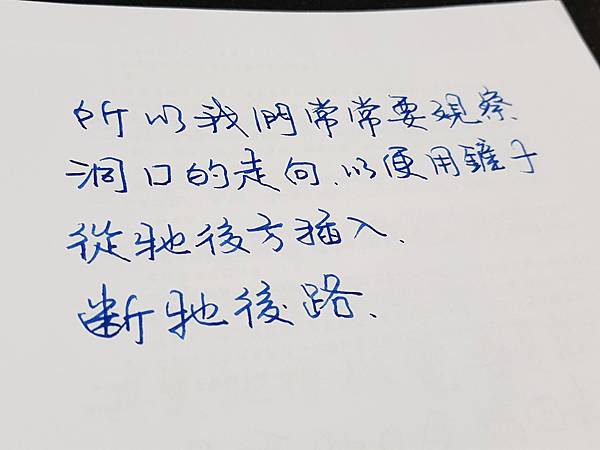 所以我們常常要観察、
洞口的走向、以便用鏟子
從牠後方插入、
断牠後路、